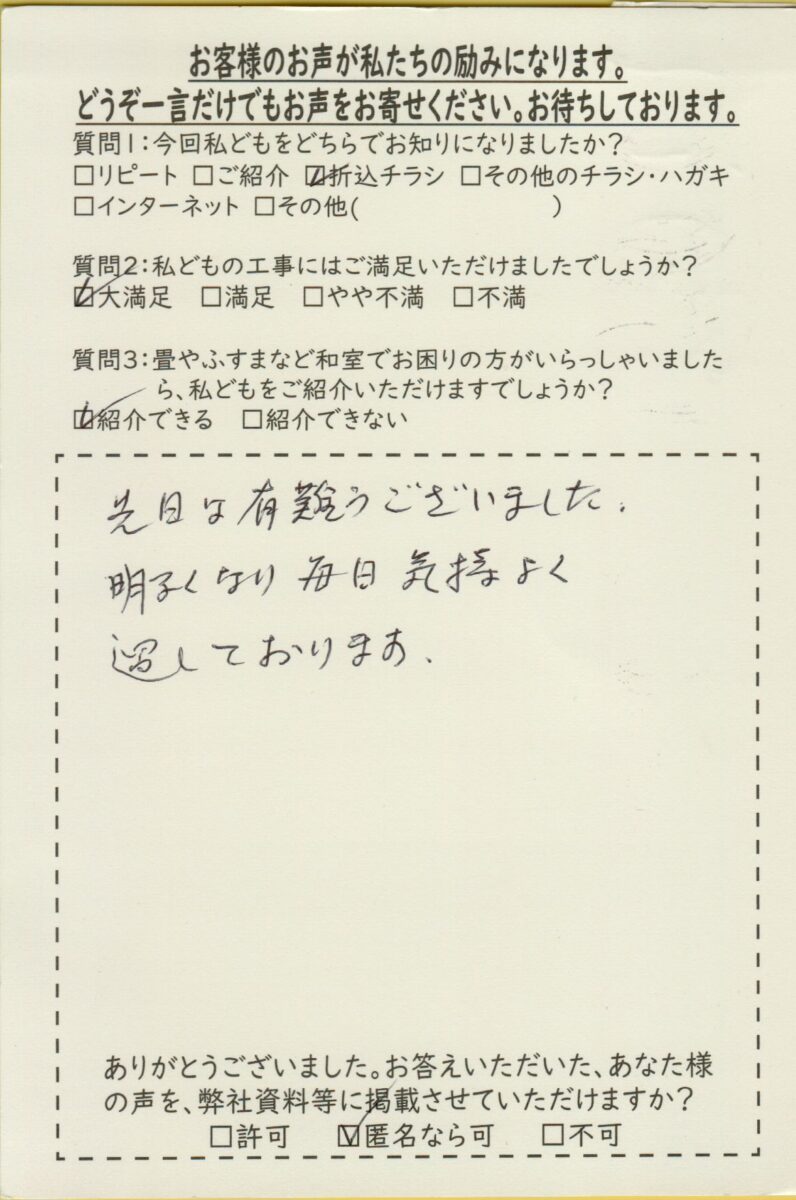 お客様のお声が私たちの励みになります。
どうぞ一言だけでもお声をお寄せください。お待ちしております。
質問1:今回私どもをどちらでお知りになりましたか?
□リピート □ご紹介 ☑折込チラシ □その他のチラシ・ハガキ
□インターネット □その他( )
質問2:私どもの工事にはご満足いただけましたでしょうか?
☑大満足 □満足 □やや不満 □不満
質問3:畳やふすまなど和室でお困りの方がいらっしゃいました
ら、私どもをご紹介いただけますでしょうか?
☑紹介できる □紹介できない
先日は有難うございました.
明るくなり毎日気持よく
過しております.
ありがとうございました。お答えいただいた、あなた様
の声を、弊社資料等に掲載させていただけますか?
□許可 ☑匿名なら可 □不可